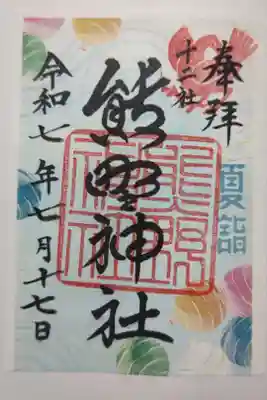 奉拝
十二社
夏詣
熊野神社
令和七年七月十七日